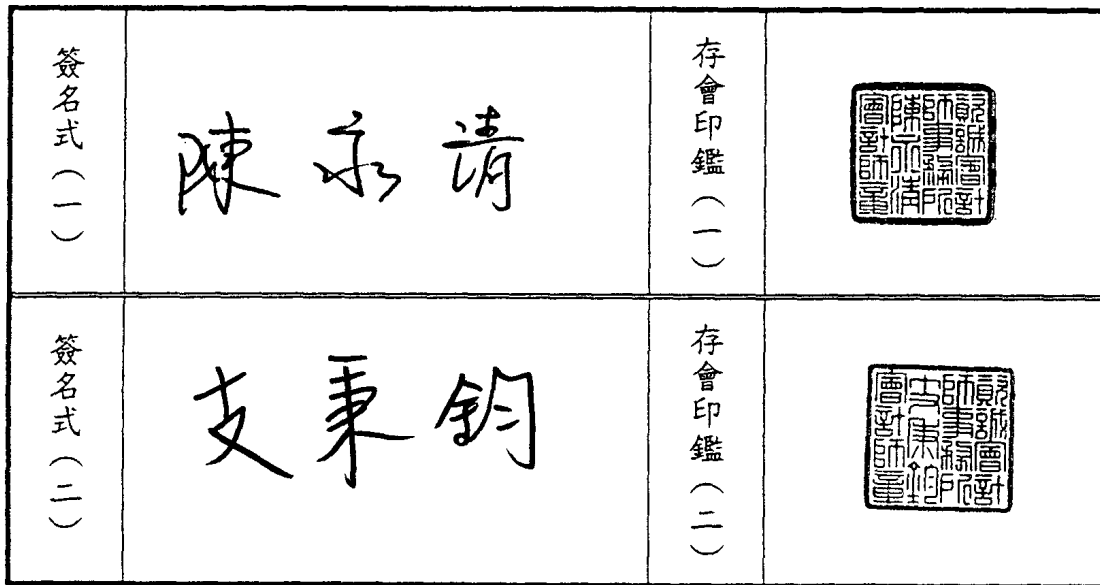 簽名式（一）
陳永清
存會印鑑（一）
資誠會計
師事務所
陳永清
會計師章
簽名式（二）
支秉鈞
存會印鑑（二）
資誠會計
師事務所
支秉鈞
會計師章